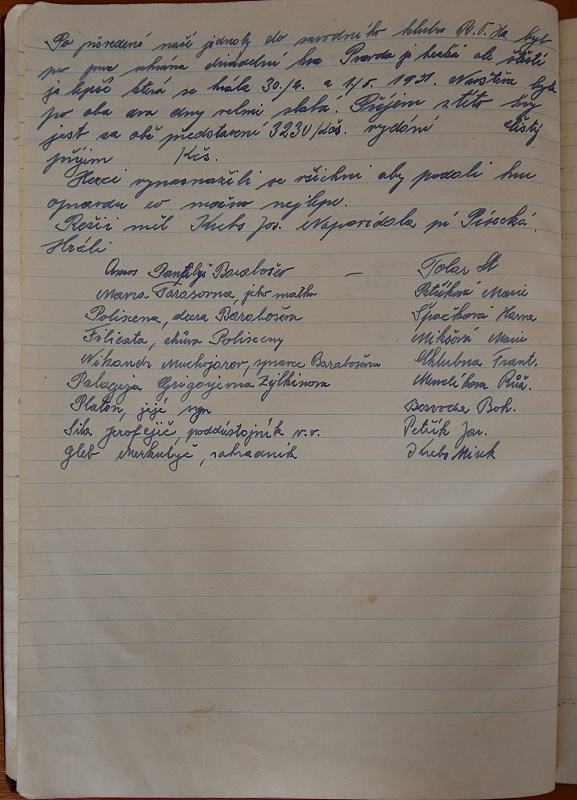 Po převedení naší jednoty do závodního klubu R.O.H. byl
po prvé sehrána divadelní hra Pravda je hezká ale štěstí
je lepší která se hrála 30./4. a 1./5. 1951. Návštěva byla
po oba dva dny velmi slabá. Příjem z této hry
jest za obě představení 3230 Kčs. vydání čistý
příjem Kčs.
Herci vynasnažili se všichni aby podali hru
opravdu co možno nejlépe.
Režii měl Krebs Jos. Napovídala pí Písecká.
Hráli
Amos Panfilyč Barabošev — Tolar St
Mavra Tarasovna, jeho matka Petříková Marie
Polixena, dcera Baraboševa Špačková Hana
Filicata, chůva Polixeny Mikšová Marie
Nikandr Muchojarov, správce Baraboševa Chlubna Frant.
Palageja Grigorjevna Zybkinova Růž.
Platon, její syn Svovoda Boh.
Sila Jerofejič, poddůstojník v.v. Petřík Jar.
Gleb Merkulyč, zahradník Mirek